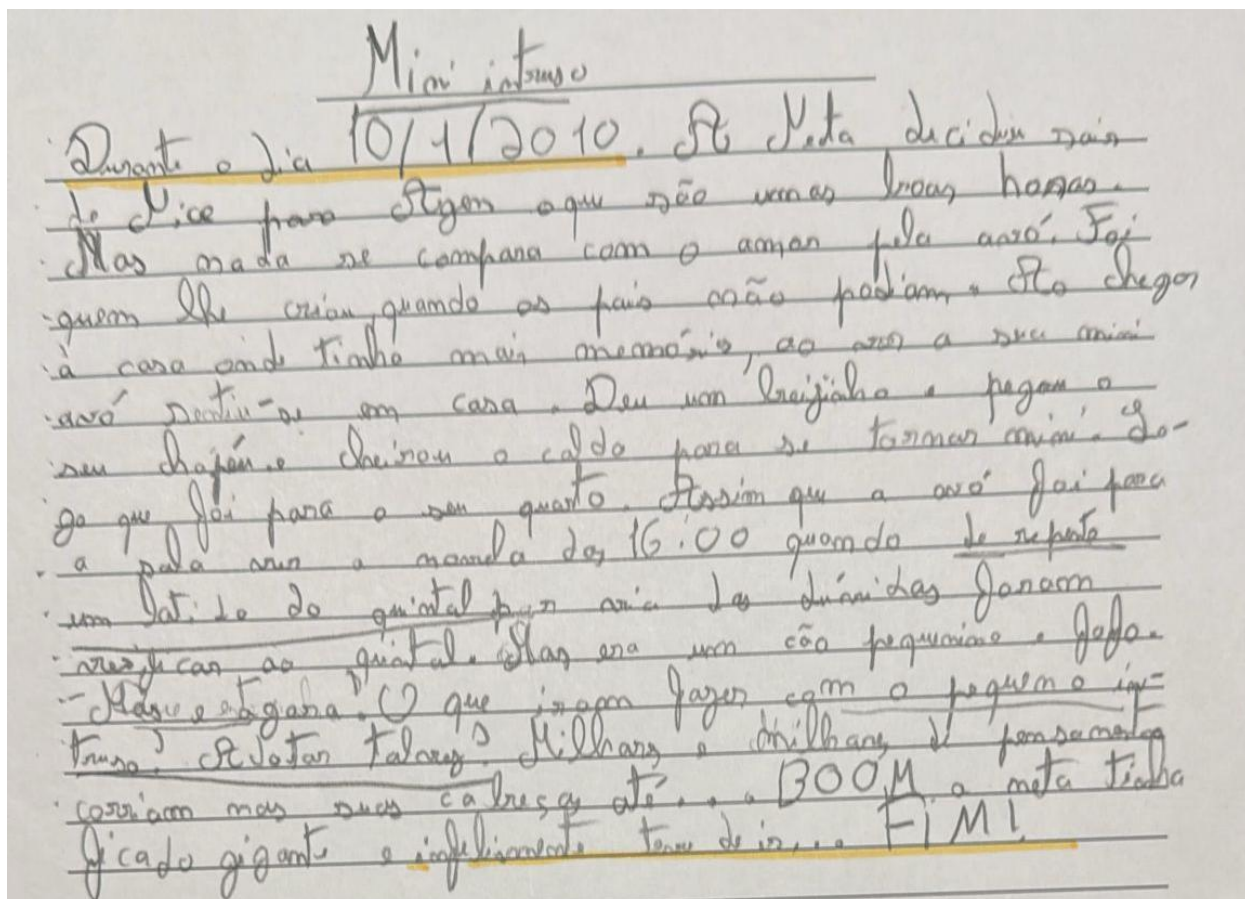 Mini intruso
Durante o dia 10/1/2010. A Neta decidiu sair
de Nice para Agen o que são umas boas horas.
Mas nada se compara com o amor pela avó. Foi
quem lhe criou, quando os pais não podiam. Ao chegar
à casa onde tinha mais memória, ao ver a sua mini
avó sentiu-se em casa. Deu um beijinho e pegou o
seu chapéu e cheirou o caldo para se tornar mini. Lo-
go que foi para o seu quarto. Assim que a avó foi para
a sala a das 16:00 quando de repente
um latido do quintal das dúvidas foram
verificar ao quintal. Mas era um cão pequenino e fofo.
- E agora? O que iriam fazer com o pequeno in-
truso? Adotar talvez? Milhares e milhares de pensamentos
corriam nas suas cabeças até... BOOM a neta tinha
ficado gigante e infelizmente teve de ir... FIM!